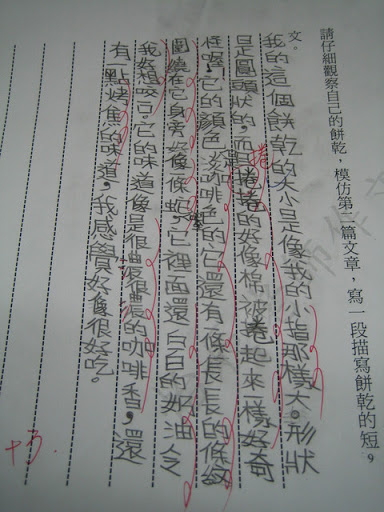 請仔細觀察自己的餅乾，模仿第二篇文章，寫一段描寫餅乾的短
文。
我的這個餅乾的大小是像我的小指那樣大。形狀
是圓頭狀的，而捲捲的好像棉被捲起來一樣好奇
怪喔，它的顏色淡咖啡色的它還有一條長長的條紋
圍繞在它身旁好像條蛇，它裡面還白白的奶油令
我好想咬。它的味道像是很濃很濃的咖啡香，還
有一點烤魚的味道，我感覺好像很好吃。
捲